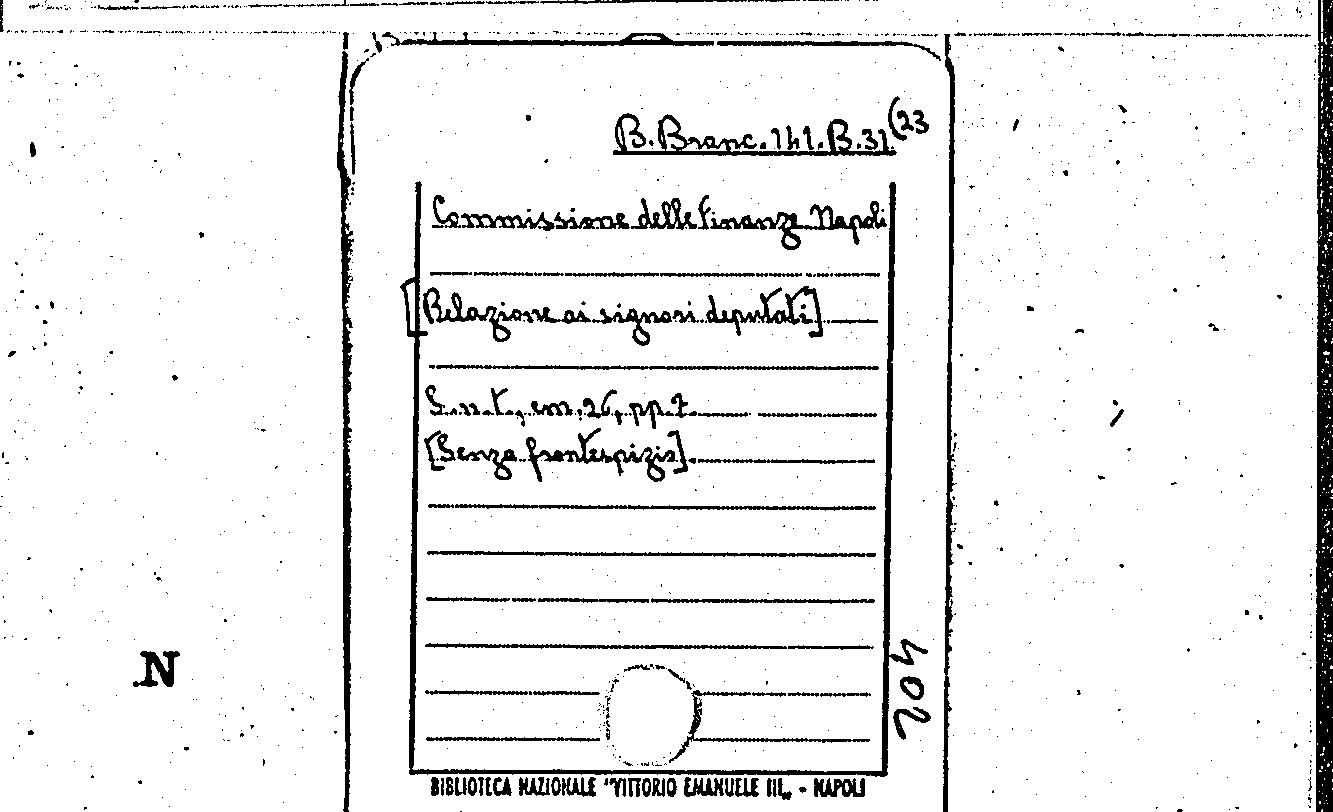 B.Branc.141.B.31(23
Commissione delle Finanze Napoli
[Relazione ai signori deputati]
S.n.t., cm.26, pp.7.
[Senza frontespizio].
N
204
BIBLIOTECA NAZIONALE "VITTORIO EMANUELE III„ - NAPOLI